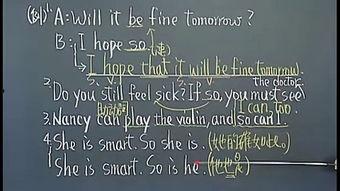 (例) 1. A: Will it be fine tomorrow?
B: I hope so.
I hope that it will be fine tomorrow.
S. V. S V
2. Do you still feel sick? If so, you must see
the doctor.
I can, too.
3. Nancy can play the violin, and so can I.
4. She is smart. So she is.
She is smart. So is he.